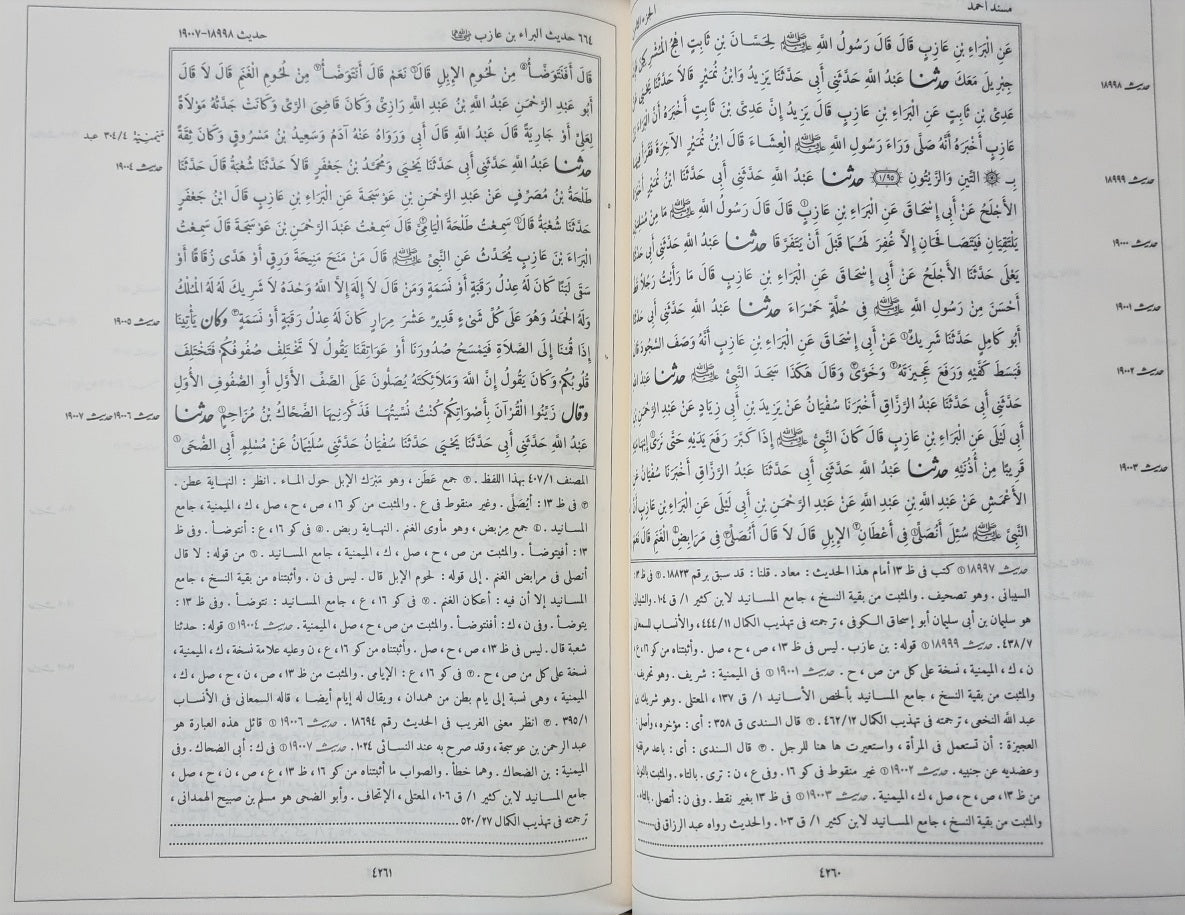 مسند أحمد
عن البراء بن عازب قال قال رسول الله ﷺ لحسان بن ثابت اهج المشركين
جبريل معك حدثنا عبد الله حدثني أبي حدثنا يزيد وابن نمير قالا حدثنا يحيى
عدي بن ثابت عن البراء بن عازب قال يزيد إن عدي بن ثابت أخبره أن البراء
عازب أخبره أنه صلى وراء رسول الله ﷺ العشاء قال ابن نمير الآخرة فقرأ فيها
بـ ۞ التين والزيتون ۞ ١/٩٥ حدثنا عبد الله حدثني أبي حدثنا ابن نمير
الأجلح عن أبي إسحاق عن البراء بن عازب① قال قال رسول الله ﷺ ما من مسلمين
يلتقيان فيتصافحان إلا غفر لهما قبل أن يتفرقا حدثنا عبد الله حدثني أبي
يعلى حدثنا الأجلح عن أبي إسحاق عن البراء بن عازب قال ما رأيت رجلا قط
أحسن من رسول الله ﷺ في حلة حمراء حدثنا عبد الله حدثني أبي
أبو كامل حدثنا شريك① عن أبي إسحاق عن البراء بن عازب أنه وصف السجود قال
فبسط كفيه ورفع عجيزته② وخوى③ وقال هكذا سجد النبي ﷺ حدثنا عبد الله
حدثني أبي حدثنا عبد الرزاق أخبرنا سفيان عن يزيد بن أبي زياد عن عبد الرحمن بن
أبي ليلى عن البراء بن عازب قال كان النبي ﷺ إذا كبر رفع يديه حتى نرى① إبهاميه
قريبا من أذنيه حدثنا عبد الله حدثني أبي حدثنا عبد الرزاق أخبرنا سفيان عن
الأعمش عن عبد الله بن عبد الله عن عبد الرحمن بن أبي ليلى عن البراء بن عازب أن
النبي ﷺ سئل أنصلي① في أعطان② الإبل قال لا قال أنصلي③ في مرابض④ الغنم قال نعم
حديث ١٨٩٩٨
حديث ١٨٩٩٩
حديث ١٩٠٠٠
حديث ١٩٠٠١
حديث ١٩٠٠٢
حديث ١٩٠٠٣
حديث ١٨٩٩٧ ① كتب في ظ ١٣ أمام هذا الحديث : معاد . قلنا : قد سبق برقم ١٨٨٢٣ . ② في ظ ١٣ :
السيباني . وهو تصحيف . والمثبت من بقية النسخ ، جامع المسانيد لابن كثير ١/ ق ١٠٤ . والشيباني
هو سليمان بن أبي سليمان أبو إسحاق الكوفي ، ترجمته في تهذيب الكمال ٤٤٤/١١ ، والأنساب للسمعاني
٤٣٨/٧ . حديث ١٨٩٩٩ ① قوله : بن عازب . ليس في ظ ١٣ ، ص ، ح ، صل . وأثبتناه من كو ١٦ ، ع ،
ن ، ك ، الميمنية ، نسخة على كل من ص ، ح . حديث ١٩٠٠١ ① في الميمنية : شريف . وهو تحريف
والمثبت من بقية النسخ ، جامع المسانيد بألخص الأسانيد ١/ ق ١٣٧ ، المعتلي . وهو شريك بن
عبد الله النخعي ، ترجمته في تهذيب الكمال ٤٦٢/١٢ . ② قال السندي ق ٣٥٨ : أي : مؤخره ، وأصل
العجيزة : أن تستعمل في المرأة ، واستعيرت ها هنا للرجل . ③ قال السندي : أي : باعد مرفقيه
وعضديه عن جنبيه . حديث ١٩٠٠٢ ① غير منقوط في كو ١٦ . وفي ع ، ن : ترى . بالتاء . والمثبت بالنون
من ظ ١٣ ، ص ، ح ، صل ، ك ، الميمنية . حديث ١٩٠٠٣ ① في ظ ١٣ بغير نقط . وفي ن : أتصلي . بالتاء .
والمثبت من بقية النسخ ، جامع المسانيد لابن كثير ١/ ق ١٠٣ . والحديث رواه عبد الرزاق في
٤٢٦٠
٦٦٤ حديث البراء بن عازب ﷺ
حديث ١٨٩٩٨-١٩٠٠٧
قال أفنتوضأ⑤ من لحوم الإبل قال⑥ نعم قال أنتوضأ⑦ من لحوم الغنم قال لا قال
أبو عبد الرحمن عبد الله بن عبد الله رازي وكان قاضي الري وكانت جدته مولاة
لعلي أو جارية قال عبد الله قال أبي ورواه عنه آدم وسعيد بن مسروق وكان ثقة
حدثنا عبد الله حدثني أبي حدثنا يحيى ومحمد بن جعفر قالا حدثنا شعبة قال حدثنا
طلحة بن مصرف عن عبد الرحمن بن عوسجة عن البراء بن عازب قال ابن جعفر
حدثنا شعبة قال① سمعت طلحة اليامي② قال سمعت عبد الرحمن بن عوسجة قال سمعت
البراء بن عازب يحدث عن النبي ﷺ قال من منح منيحة ورق أو هدى زقاقا أو
سقى لبنا كان له عدل رقبة أو نسمة ومن قال لا إله إلا الله وحده لا شريك له له الملك
وله الحمد وهو على كل شيء قدير عشر مرار كان له عدل رقبة أو نسمة③ وكان يأتينا
إذا قمنا إلى الصلاة فيمسح صدورنا أو عواتقنا يقول لا تختلف صفوفكم فتختلف
قلوبكم وكان يقول إن الله وملائكته يصلون على الصف الأول أو الصفوف الأول
وقال زينوا القرآن بأصواتكم كنت نسيتها فذكرنيها الضحاك بن مزاحم① حدثنا
عبد الله حدثني أبي حدثنا يحيى حدثنا سفيان حدثني سليمان عن مسلم أبي الضحى①
ميمنية ٣٠٤/٤ عبد
حديث ١٩٠٠٤
حديث ١٩٠٠٥
حديث ١٩٠٠٦ حديث ١٩٠٠٧
المصنف ٤٠٧/١ بهذا اللفظ . ② جمع عطن ، وهو مبرك الإبل حول الماء . انظر : النهاية عطن .
③ في ظ ١٣ : أيصلى . وغير منقوط في ع . والمثبت من كو ١٦ ، ص ، ح ، صل ، ك ، الميمنية ، جامع
المسانيد . ④ جمع مربض ، وهو مأوى الغنم . النهاية ربض . ⑤ في كو ١٦ ، ع : أنتوضأ . وفي ظ
١٣ : أفيتوضأ . والمثبت من ص ، ح ، صل ، ك ، الميمنية ، جامع المسانيد . ⑥ من قوله : لا قال
أنصلي في مرابض الغنم . إلى قوله : لحوم الإبل قال . ليس في ن . وأثبتناه من بقية النسخ ، جامع
المسانيد إلا أن فيه : أعكان الغنم . ⑦ في كو ١٦ ، ع ، جامع المسانيد : نتوضأ . وفي ظ ١٣ :
يتوضأ . وفي ن ، ك : أفنتوضأ . والمثبت من ص ، ح ، صل ، الميمنية . حديث ١٩٠٠٤ ① قوله : حدثنا
شعبة قال . ليس في ظ ١٣ ، ص ، ح ، صل . وأثبتناه من كو ١٦ ، ع ، ن وعليه علامة نسخة ، ك ، الميمنية ،
نسخة على كل من ص ، ح . ② في كو ١٦ ، ع : الإيامي . والمثبت من ظ ١٣ ، ص ، ن ، ح ، صل ، ك ،
الميمنية ، وهي نسبة إلى يام بطن من همدان ، ويقال له إيام أيضا ، قاله السمعاني في الأنساب
٣٩٥/١ . ③ انظر معنى الغريب في الحديث رقم ١٨٦٩٤ . حديث ١٩٠٠٦ ① قائل هذه العبارة هو
عبد الرحمن بن عوسجة ، وقد صرح به عند النسائي ١٠٢٤ . حديث ١٩٠٠٧ ① في ك : أبي الضحاك . وفي
الميمنية : بن الضحاك . وهما خطأ . والصواب ما أثبتناه من كو ١٦ ، ظ ١٣ ، ع ، ص ، ن ، ح ، صل ،
جامع المسانيد لابن كثير ١/ ق ١٠٦ ، المعتلي ، الإتحاف . وأبو الضحى هو مسلم بن صبيح الهمداني ،
ترجمته في تهذيب الكمال ٥٢٠/٢٧
٤٢٦١